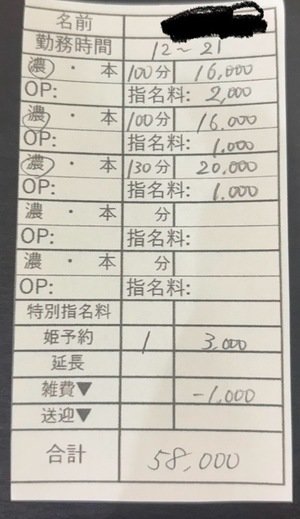 名前
勤務時間 12～21
濃・本 100分 16,000
OP: 指名料: 2,000
濃・本 100分 16.000
OP: 指名料: 1.000
濃・本 130分 20.000
OP: 指名料: 1.000
濃・本 分
OP: 指名料:
濃・本 分
OP: 指名料:
特別指名料
姫予約 1 3.000
延長
雑費▼ -1,000
送迎▼
合計 58,000